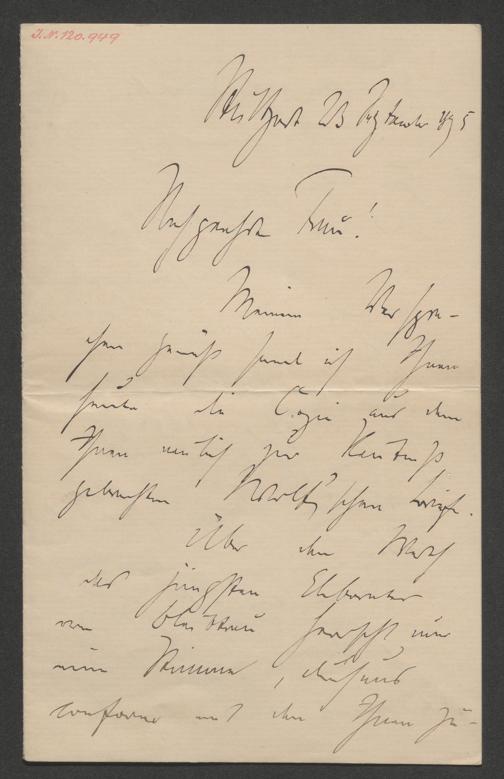 I.N. 120.949
Stuttgart 23 September 895
Hochgeehrte Frau!
Meinem Verspre-
chen gemäß sende ich Ihnen
heute die Copie aus dem
Ihnen neulich zur Kentniß
gebrachten Wolf'schen Briefe.
Über den Werth
des jüngsten Elaborates
von herrscht nur
eine Stimme, durchaus
conform mit den Ihnen zu-